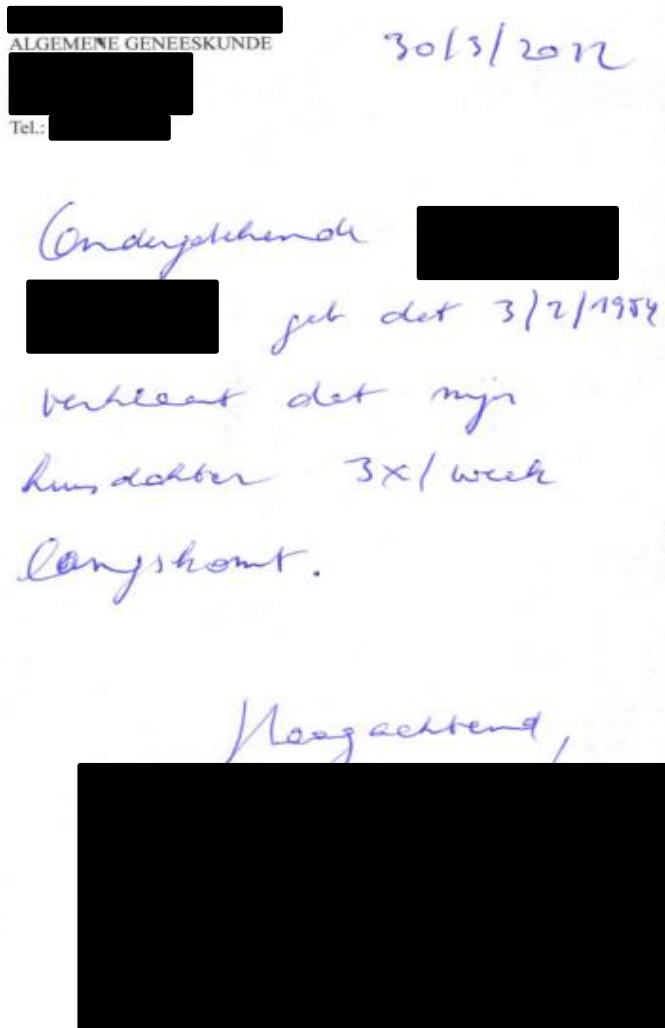 ALGEMENE GENEESKUNDE
30/3/2012
Tel.:
Ondergetekende
geb dat 3/2/1954
verklaart dat mijn
huisdokter 3x/week
langskomt.
Hoogachtend,